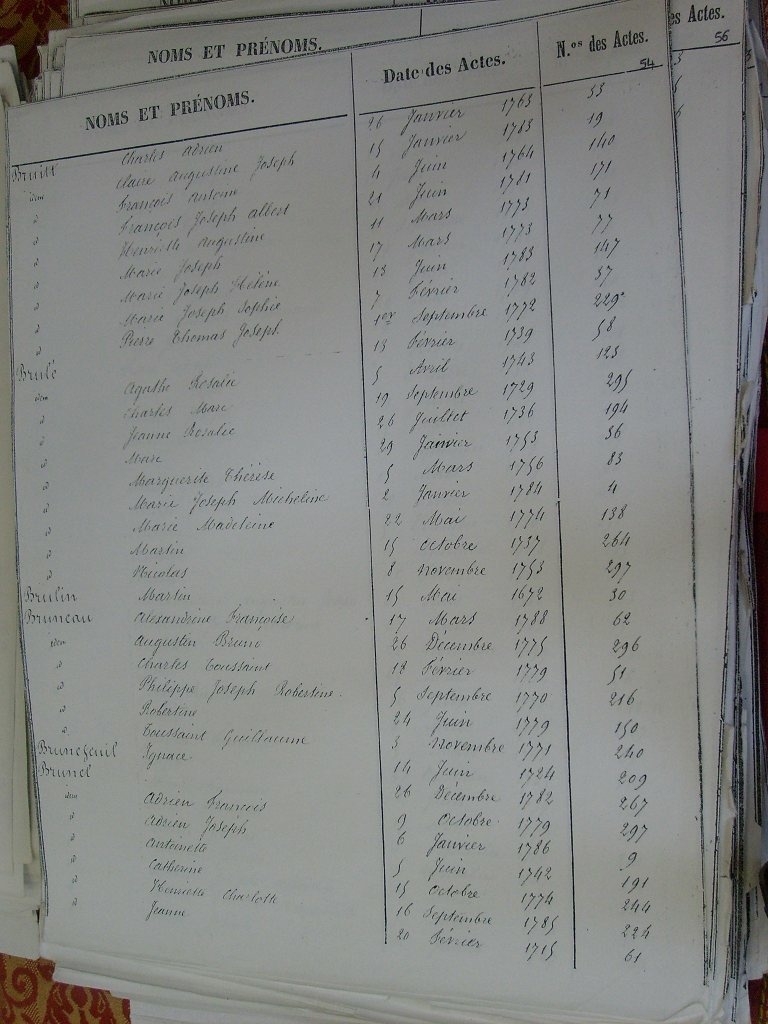 es Actes.
56
NOMS ET PRÉNOMS.
54
NOMS ET PRÉNOMS. Date des Actes. N.os des Actes.
Charles Adrien 26 Janvier 1763 53
idem Claire Augustine Joseph 15 Janvier 1783 19
d François Antoine 4 Juin 1764 140
d François Joseph albert 21 Juin 1781 171
d Henriette Augustine 11 Mars 1773 71
d Marie Joseph 17 Mars 1773 77
d Marie Joseph Hélène 13 Juin 1783 147
d Marie Joseph Sophie 7 Février 1782 37
d Pierre Thomas Joseph 1er Septembre 1772 229
Brulé 13 Février 1739 58
idem Agathe Rosalie 5 Avril 1743 123
d Charles Marc 19 Septembre 1729 295
d Jeanne Rosalie 26 Juillet 1736 194
d Marc 29 Janvier 1753 36
d Marguerite Thérèse 5 Mars 1756 83
d Marie Joseph Micheline 2 Janvier 1784 4
d Marie Madeleine 22 Mai 1774 138
d Martin 15 octobre 1737 264
d Nicolas 8 novembre 1753 297
Brulin Martin 15 Mai 1672 30
Bruneau Alexandrine Françoise 17 Mars 1788 62
idem Augustin Bruno 26 Décembre 1775 296
d Charles Toussaint 12 Février 1779 51
d Philippe Joseph Robertine. 5 Septembre 1770 216
d Robertine 24 Juin 1779 150
d Toussaint Guillaume 3 novembre 1771 240
Brunefeuil Ignace 14 Juin 1724 209
Brunel 26 Décembre 1782 267
idem Adrien François 9 Octobre 1779 297
d Adrien Joseph 6 Janvier 1786 9
d Antoinette 5 Juin 1742 191
d Catherine 15 Octobre 1774 244
d Henriette Charlotte 16 Septembre 1785 224
d Jeanne 20 Février 1715 61